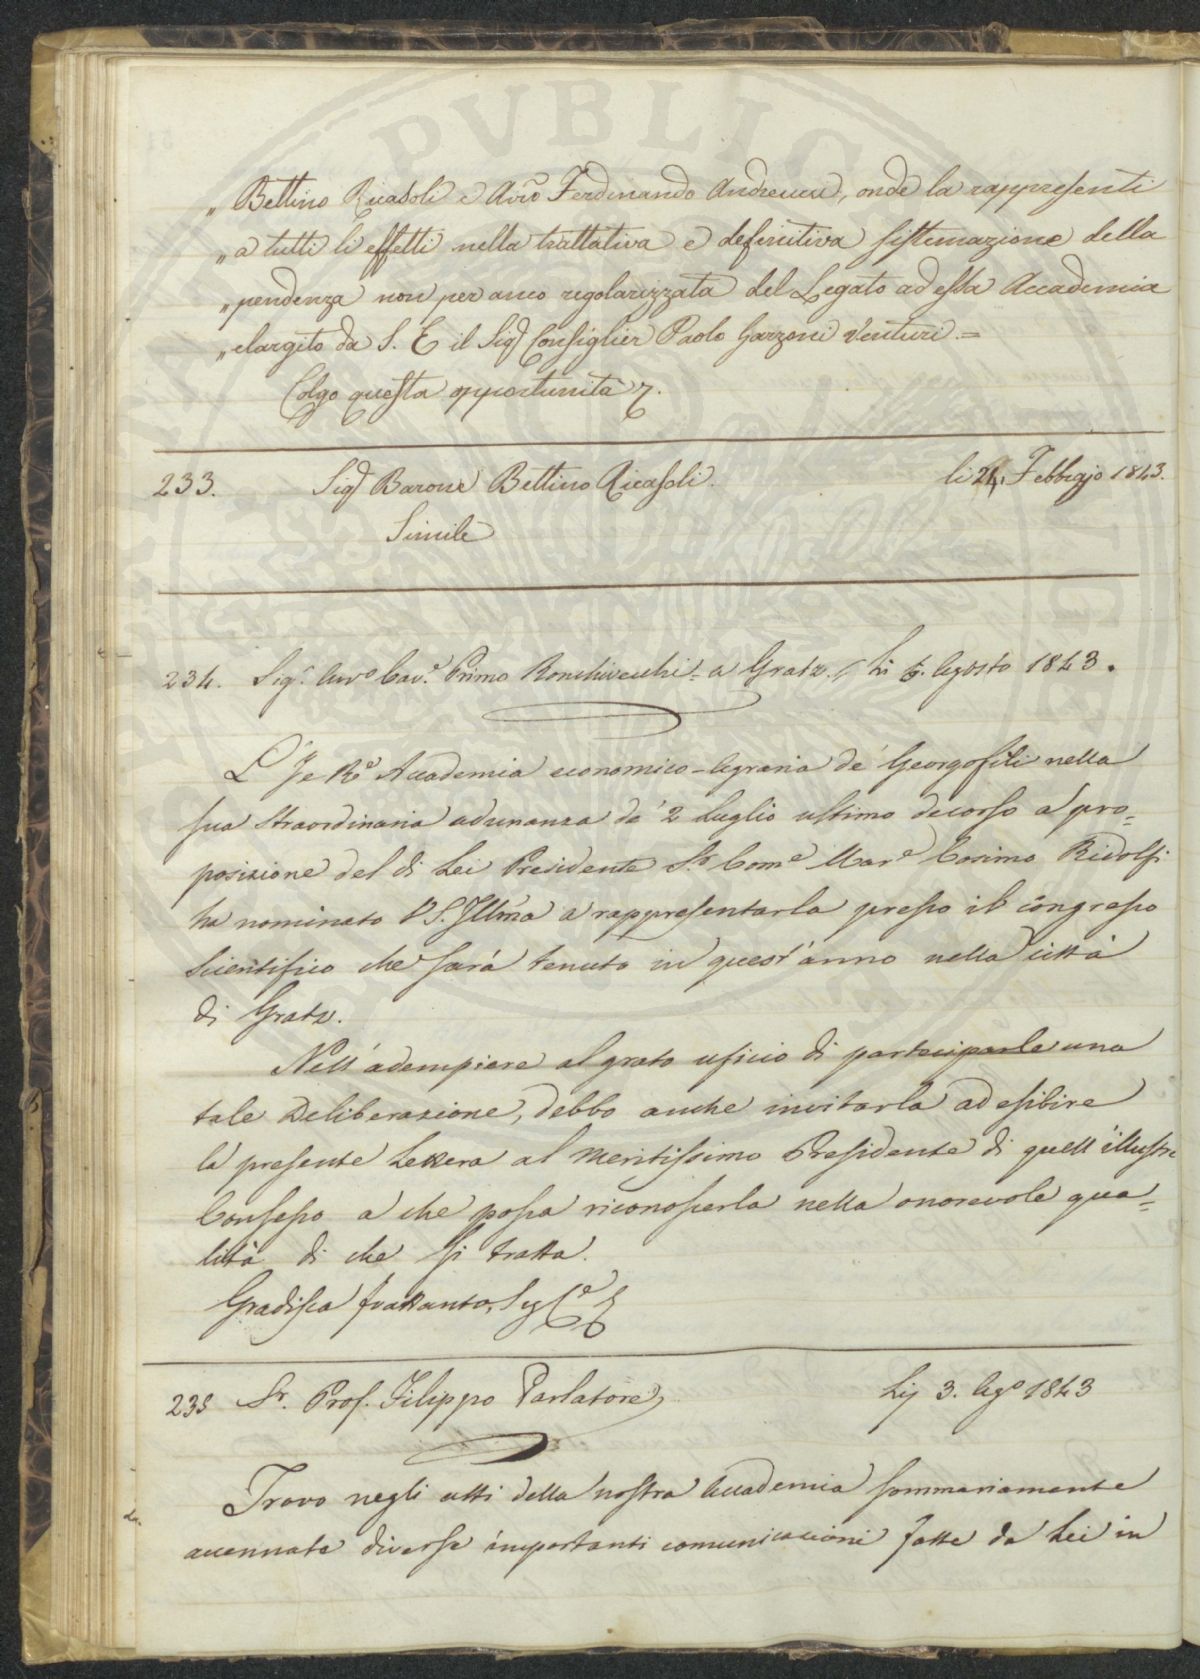 „ Bettino Ricasoli e Avvo Ferdinando Andreucci, onde la rappresenti
„ a tutti li effetti nella trattativa e definitiva sistemazione della
„ pendenza non per anco regolarizzata del Legato ad essa Accademia
„ elargito da S. E il Sig Consiglier Paolo Garzoni Venturi =
Colgo questa opportunità
233. Sig Barone Bettino Ricasoli. li 24, Febbrajo 1843.
Simile
234. Sigr. Avvo Cav.e Primo Ronchivecchi = a Gratz. Li 5. Agosto 1843.
L' I e Re Accademia economico-Agraria de' Georgofili nella
sua straordinaria adunanza de' 2 Luglio ultimo decorso a pro=
posizione del di Lei Presidente Sr. Come Mare Cosimo Ridolfi
ha nominato V S. Illma a rappresentarla presso il congresso
Scientifico che sarà tenuto in quest'anno nella città
di Gratz.
Nell' adempiere al grato uficio di parteciparle una
tale Deliberazione, debbo anche invitarla ad esibire
la presente Lettera al meritissimo Presidente di quell' illustre
Consesso a che possa riconoscerla nella onorevole qua=
lità di che si tratta.
Gradisca frattanto,
235 Sr. Prof. Filippo Parlatore Lij 3. Ago 1843
Trovo negli atti della nostra Accademia sommariamente
accennate diverse importanti comunicazioni fatte da Lei in
PVBLIC